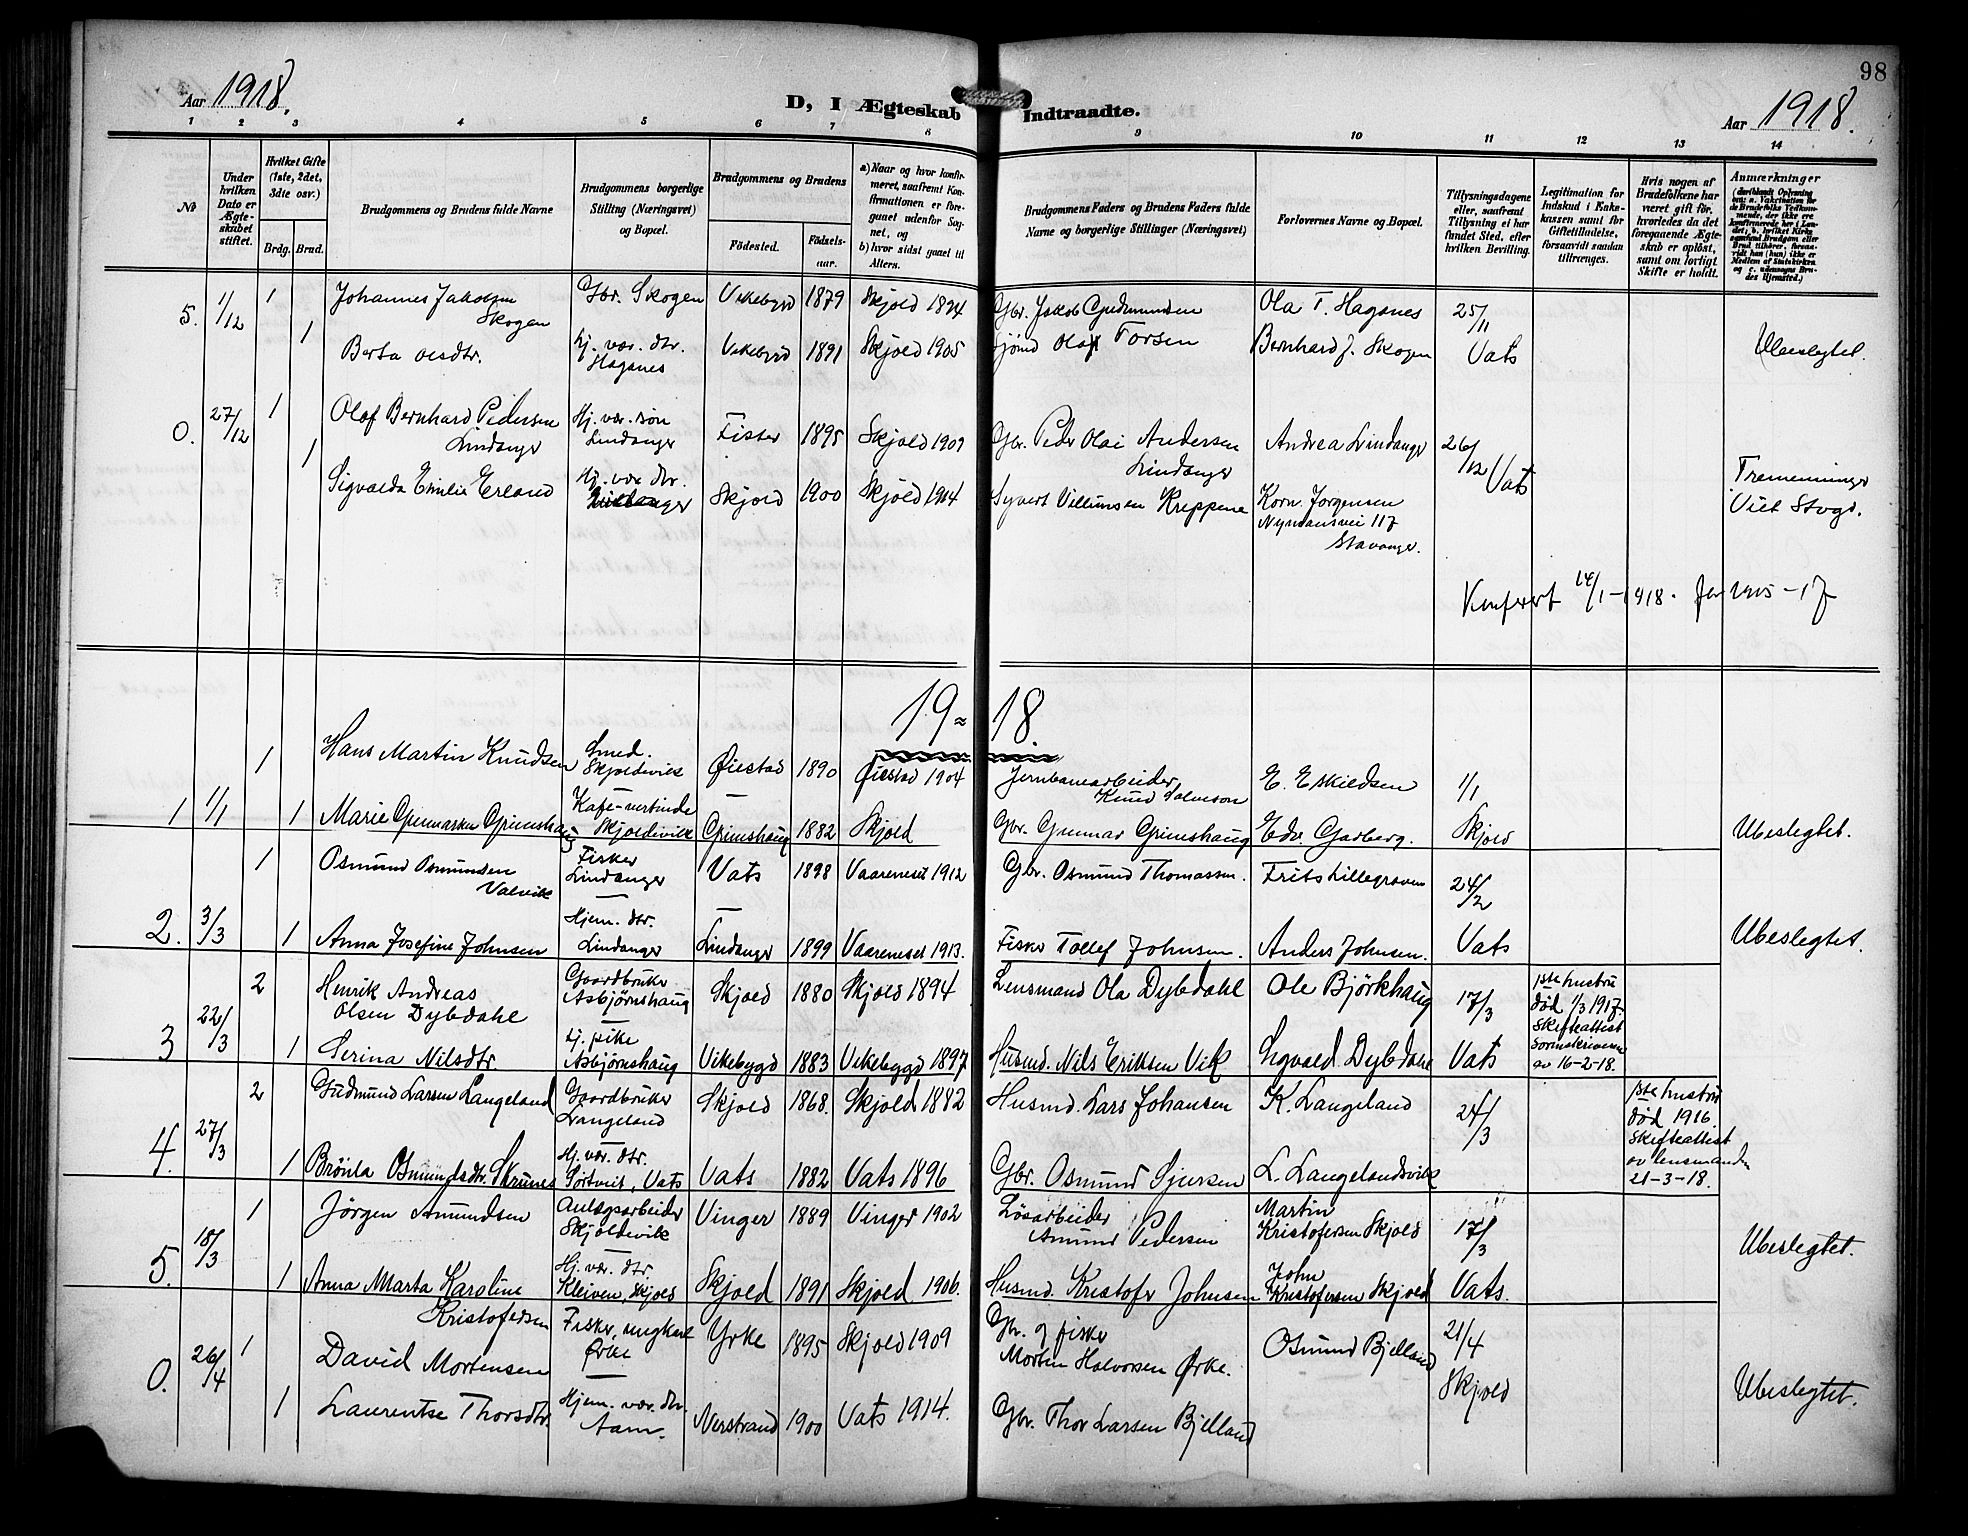 98
Aar 1918.
D, I Ægteskab Indtraadte.
Aar 1918.
1 2 3 4 5 6 7 8 9 10 11 12 13 14
No
Under hvilken Dato er Ægteskabet stiftet.
Hvilket Gifte (1ste, 2det, 3die osv.)
Brdg. Brud.
Brudgommens og Brudens fulde Navne
Brudgommens borgerlige Stilling (Næringsvei) og Bopæl.
Brudgommens og Brudens
Fødested. Fødselsaar.
a) Naar og hvor konfirmeret, saafremt Konfirmationen er foregaaet udenfor Sognet, og
b) hvor sidst gaaet til Alters.
Brudgommens Faders og Brudens Faders fulde Navne og borgerlige Stillinger (Næringsvei)
Forlovernes Navne og Bopæl.
Tillysningsdagene eller, saafremt Tillysning ei har fundet Sted, efter hvilken Bevilling.
Legitimation for Indskud i Enkekassen samt for Giftetilladelse, forsaavidt saadan tiltrænges.
Hvis nogen af Brudefolkene har været gift før, hvorledes da det foregaaende Ægteskab er opløst, samt om lovligt Skifte er holdt.
Anmærkninger
5. 1/12 1 Johannes Jakobsen Skogen Gbr. Skogen Vikebygd 1879 Skjold 1894 Gbr. Jakob Gudmundsen Ola T. Hagsnes 25/11
1 Berta Olsdtr. Hj. vær. dtr. Hagsnes Vikebygd 1891 Skjold 1905 Olaf Torsen Bernhard J. Skogen Vats Ubeslegtet.
0. 27/12 1 Olaf Bernhard Pedersen Lindanger Hj. vær. søn Lindanger Fister 1895 Skjold 1909 Gbr. Peder Olai Andersen Lindanger Andrea Lindanger 26/12 Vats
1 Sigvalda Emilie Erland Hj. vær. dtr. Skjold 1900 Skjold 1914 Syvert Villumsen Kreppene Korn. Jørgensen 117 Stavanger. Tremenninger
14/1-1918. 1915-17
19 18.
1 Hans Martin Knudsen Smed. Skjoldevik Øiestad 1890 Øiestad 1904 Jernbanearbeider Knud Salveson E. Eskildsen 1/1
1 1/1 1 Marie Gunnarsen Grimshaug Kafe-vertinde Skjoldevik Grimshaug 1882 Skjold Gbr. Gunnar Grimshaug Edv. Garberg. Skjold Ubeslegtet.
1 Osmund Osmundsen Valvik Fisker Lindanger Vats 1898 Vaareneset 1912 Gbr. Osmund Thomassen. Frits Lillegraven 24/2
2. 3/3 1 Anna Josefine Johnsen Hjem. dtr. Lindanger Lindanger 1899 Vaareneset 1913. Fisker Tollef Johnsen. Anders Johnsen. Vats Ubeslegtet.
2 Henrik Andreas Olsen Dybdahl Gaardbruker Asbjørnshaug Skjold 1880 Skjold 1894 Lensmand Ola Dybdahl Ole Björkhaug 17/3 1ste hustru død 1/3 1917. Skifteattest Sorenskriveren av 16-2-18.
3 22/3 1 Serina Nilsdtr. Hj. pike Asbjørnshaug Vikebygd 1883 Vikebygd 1897 Husmd. Nils Eriksen Vik Sigvald Dybdahl Vats
2 Gudmund Larsen Langeland Gaardbruker Langeland Skjold 1868. Skjold 1882 Husmd. Lars Johansen K. Langeland 24/3 1ste hustru død 1916. Skifteattest av lensmanden 21-3-18.
4. 27/3 1 Brönla Osmundsdtr. Skrunes Hj. vær. dtr. Sørtveit, Vats Vats 1882 Vats 1896 Gbr. Osmund Sjursen L. Langelandsvik
1 Jørgen Amundsen Anlegsarbeider Skjoldevik Vinger 1889 Vinger 1902 Løsarbeider Amund Pedersen Martin Kristofersen Skjold 17/3
5. 18/3 1 Anna Marta Karoline Kristofersen Hj. vær. dtr. Kleiven, Skjold Skjold 1891 Skjold 1906. Husmd. Kristofer Johnsen John Kristofersen Skjold Vats. Ubeslegtet.
0. 26/4 1 David Mortensen Fisker, ungkarl Ørke Yrke 1895 Skjold 1909 Gbr. og fisker Morten Halvorsen Ørke. Osmund Bjelland 21/4
1 Laurentse Thorsdtr. Hjem. vær. dtr. Aam. Nerstrand 1900 Vats 1914. Gbr. Thor Larsen Bjelland Skjold Ubeslegtet.